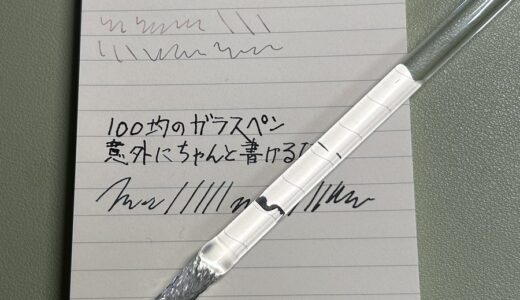 100均のガラスペン
意外にちゃんと書ける